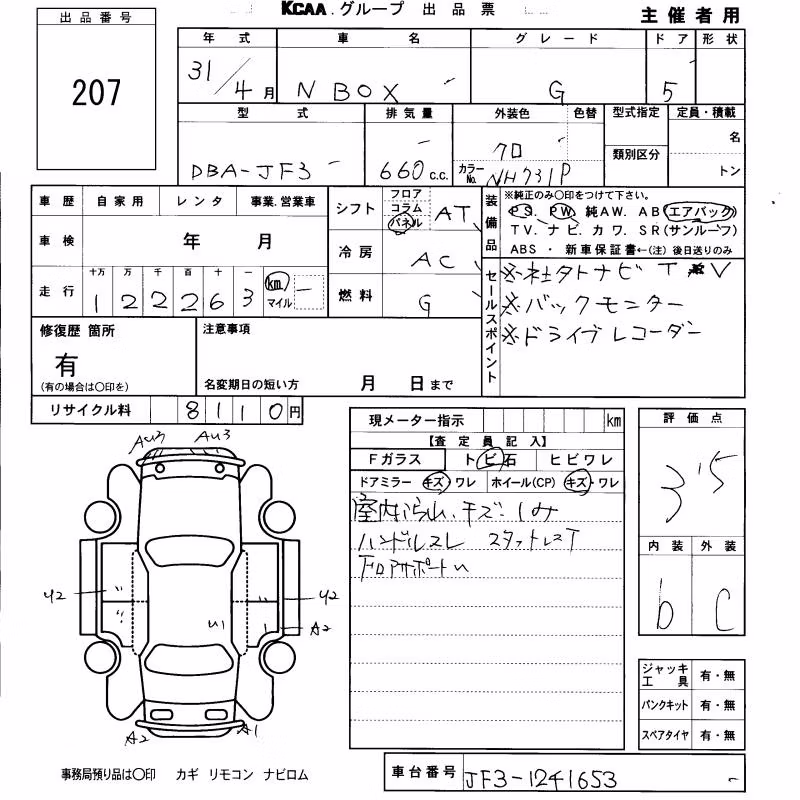 KCAA.グループ 出品票
主催者用
出品番号
207
年式 車名 グレード ドア 形状
31/4月 N BOX G 5
型式 排気量 外装色 色替 型式指定 定員・積載
名
類別区分
DBA-JF3 660 c.c. クロ カラーNo. NH731P トン
車歴 自家用 レンタ 事業.営業車
車検 年 月
走行 十万 万 千 百 十 一
1 2 2 2 6 3 km マイル
シフト フロア コラム パネル AT
冷房 AC
燃料 G
装備品
※純正のみ〇印をつけて下さい。
PS. PW. 純AW. AB(エアバック)
TV. ナビ. カワ. SR(サンルーフ)
ABS ・ 新車保証書←(注) 後日送りのみ
セールスポイント
※社外ナビ TV
※バックモニター
※ドライブレコーダー
修復歴 箇所
有
(有の場合は〇印を)
注意事項
名変期日の短い方 月 日まで
リサイクル料 8110円
現メーター指示 km
【査定員記入】
Fガラス トビ石 ヒビワレ
ドアミラー キズ・ワレ ホイール(CP) キズ・ワレ
室内 キズ・シミ
ハンドルスレ スタットレスT
フロアサポート
評価点
3.5
内装 外装
b C
AU3 AU3
U2 U2
U1 A2
A2 A1
ジャッキ工具 有・無
パンクキット 有・無
スペアタイヤ 有・無
事務局預り品は〇印 カギ リモコン ナビロム
車台番号 JF3-1241653